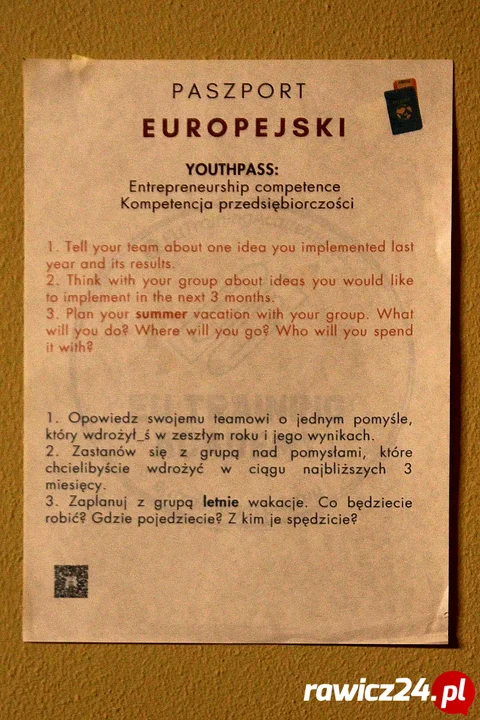 PASZPORT
EUROPEJSKI
YOUTHPASS:
Entrepreneurship competence
Kompetencja przedsiębiorczości
1. Tell your team about one idea you implemented last
year and its results.
2. Think with your group about ideas you would like
to implement in the next 3 months.
3. Plan your summer vacation with your group. What
will you do? Where will you go? Who will you spend
it with?
1. Opowiedz swojemu teamowi o jednym pomyśle,
który wdrożył_ś w zeszłym roku i jego wynikach.
2. Zastanów się z grupą nad pomysłami, które
chcielibyście wdrożyć w ciągu najbliższych 3
miesięcy.
3. Zaplanuj z grupą letnie wakacje. Co będziecie
robić? Gdzie pojedziecie? Z kim je spędzicie?
rawicz24.pl